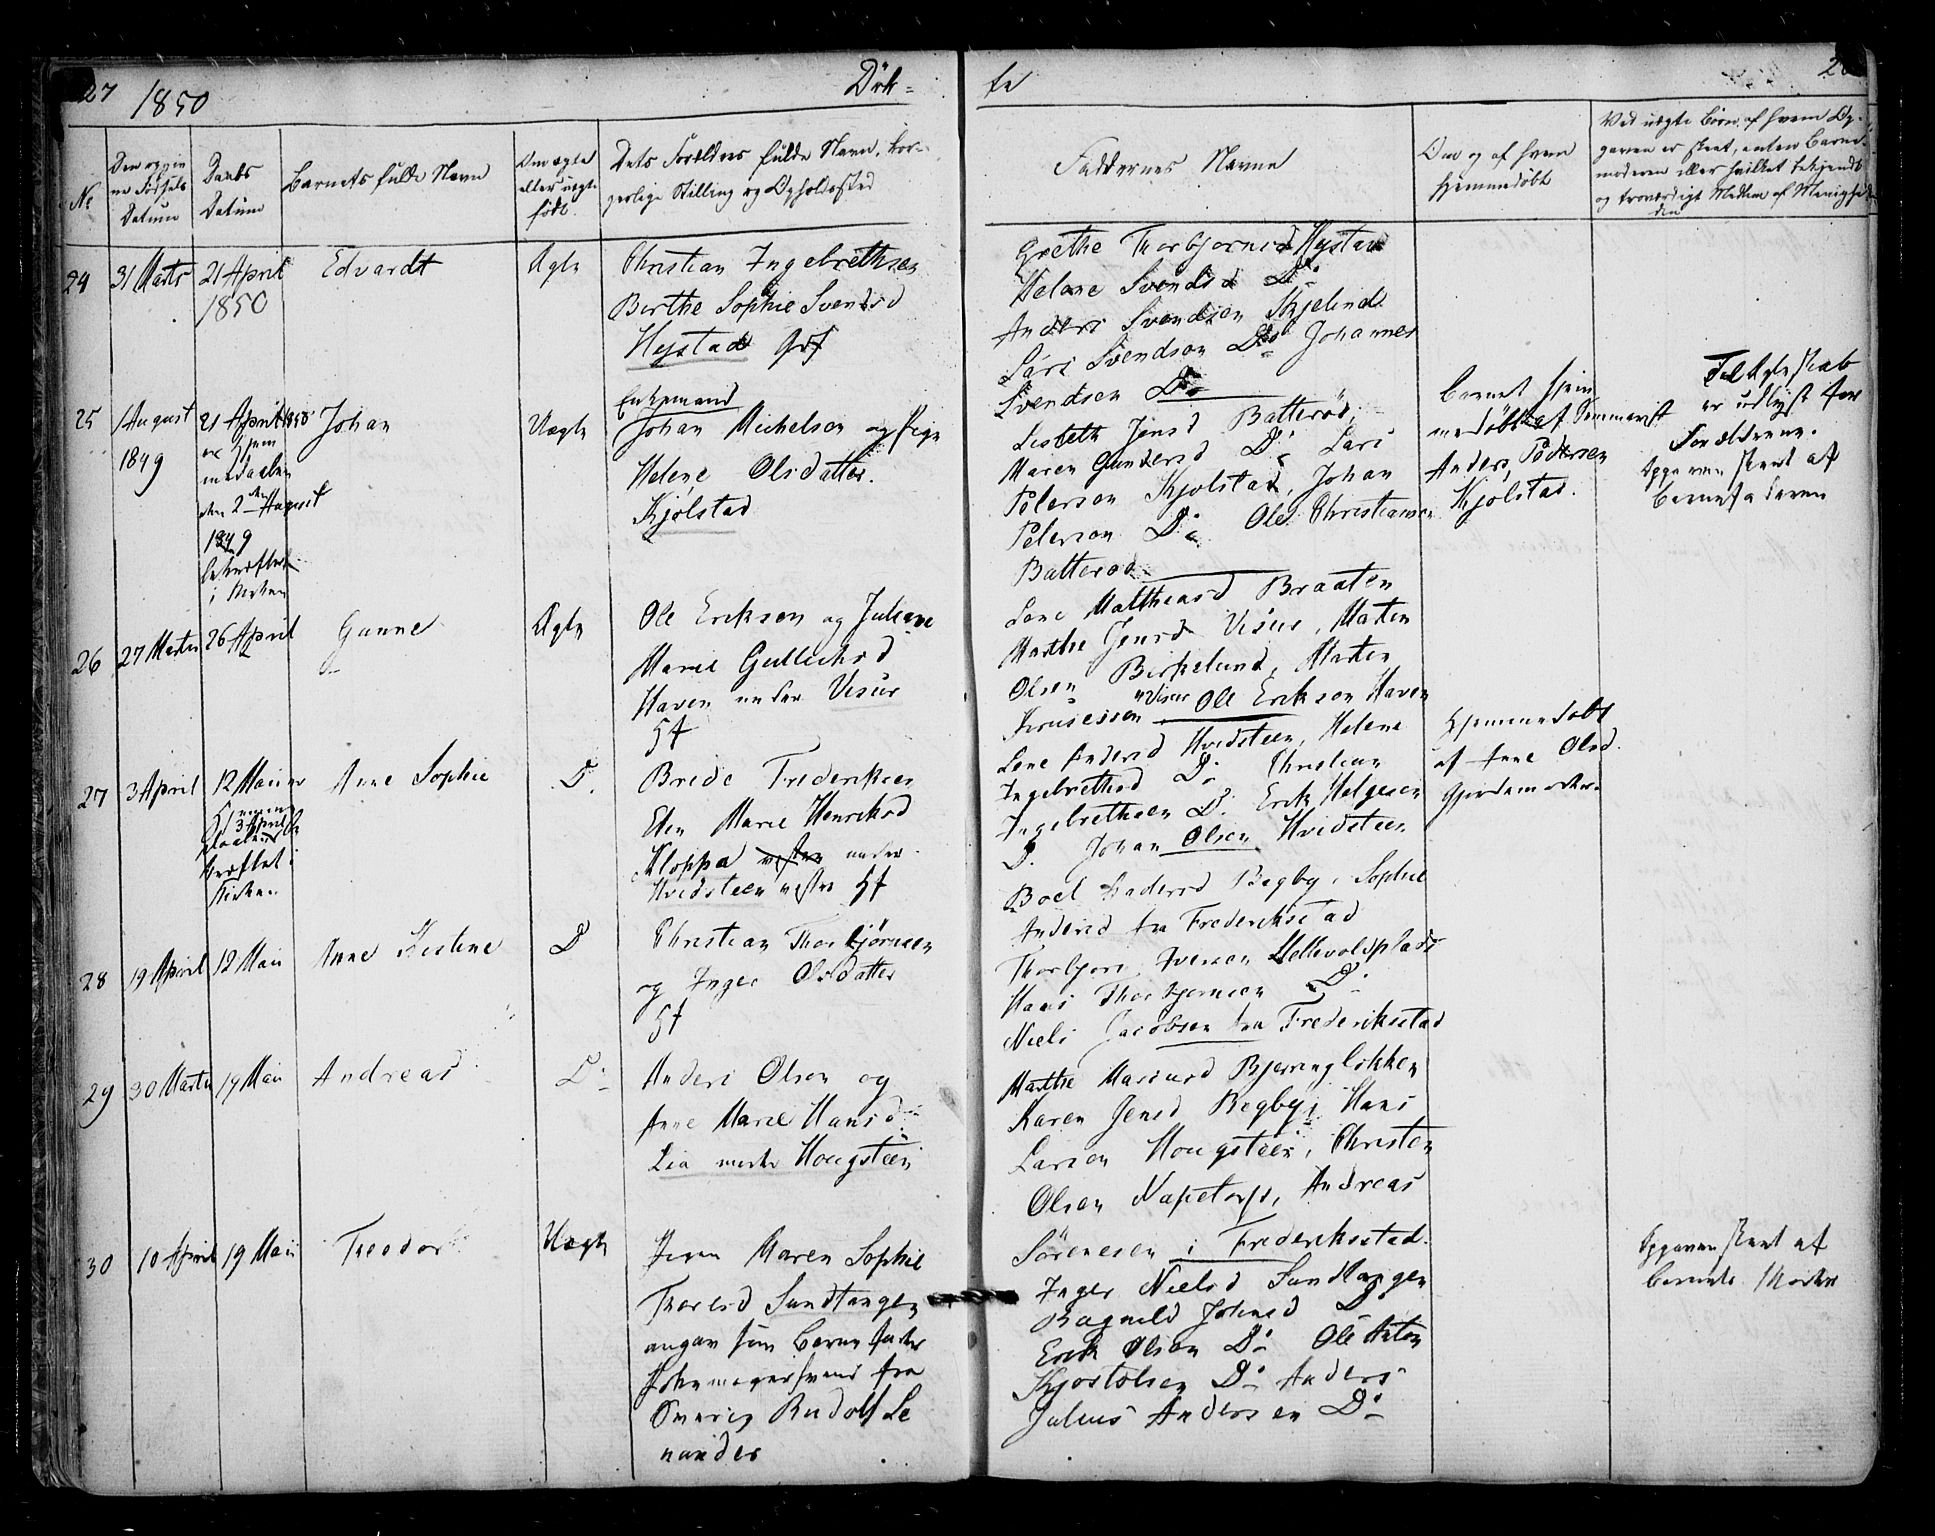 27 1850 Døb-
te
No
Den opgiv
ne Fødsels
Datum
Daabs
Datum
Barnets fulde Navn
Om ægte
eller uægte
født.
Dets Forældres fulde Navn, bor-
gerlige Stilling og Opholdssted
Faddernes Navne
Om og af hvem
hjemmedøbt
Ved uægte Børn, af hvem Op-
gaven er skeet, enten Barne-
moderen eller hvilket bekjendt
og troværdigt Medlem af Menighe-
den
24
31 Marts
21 April
1850
Edvardt
Ægte
Christian Ingebrethsen
Berthe Sophie Svendsd
Hystad
Grethe Thorbjørnsd Hystad
Helene Svendsd Do
Anders Svendsen Skjelind
Lars Svendsen Do Johannes
Svendsen Do
25
1 August
1849
21 April 1850
er hjem
medaaben
den 2den August
1849
bekræftet
i Kirken
Johan
Uægte
Enkemand
Johan Michelsen og Pige
Helene Olsdatter.
Kjølstad
Lisbeth Jensd Batterød,
Maren Gundersd Do Lars
Petersen Kjølstad, Johan
Petersen Do Ole Christiansen
Batterød
Barnet hjem
medøbt af
Anders Pedersen
Kjølstad.
Til Ægteskab
er udlyst for
Forældrene.
Opgaven skeet af
Barnefaderen
26
27 Marts
26 April
Gunne
Ægte
Ole Eriksen og Juliane
Marie Gulliksd
Haven under Visur
Lene Matthiasd Braaten
Marthe Jensd Visur, Marten
Olsen Birkelund, Marten
Visur Ole Eriksen Haven
27
3 April
12 Maii er
3 April
kræftet i
Kirken.
Anne Sophie
D.
Brede Frederiksen
Elen Marie Henriksd
Kloppa under
Hvidsteen
Lene Andersd Hvidsteen, Helene
Ingebrethsd Do Christian
Ingebrethsen D. Erik Helgesen
D. Johan Olsen Hvidsteen
Hjemmedøbt
af Anne Olsd.
Gjordemoder.
28
19 April
12 Maii
Anne Kistine
D
Christian Thorbjørnsen
og Inger Olsdatter
Boel Andersd Begby, Sophie
Andersd fra Frederiksstad
Thorbjørn Iversen
Hans Thorbjørnsen D.
Niels Jacobsen fra Frederiksstad
29
30 Marts
19 Maii
Andreas
D.
Anders Olsen og
Anne Marie Hansd.
Lia Hougsteen
Marthe Mariusd
Karen Jensd Begby, Hans
Larsen Hougsteen, Christen
Olsen Andreas
Sørensen i Frederiksstad.
30
10 April
19 Maii
Theodor
Uægte
Pigen Maren Sophie
Thoresd Sandtangen
angav som Barnefader
fra
Sverig Rudolf Le
nander
Inger Nielsd Sandtangen
Ragnild Johnsd D.
Erik Olsen Do Ole Anton
Kjøstolsen Do Anders
Julius Andersen Do
Opgaven skeet af
Barnets Moder